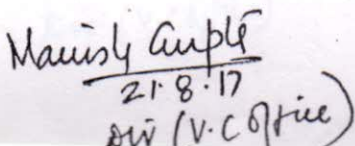 Manish Gupta
21.8.17
(V.C Office)